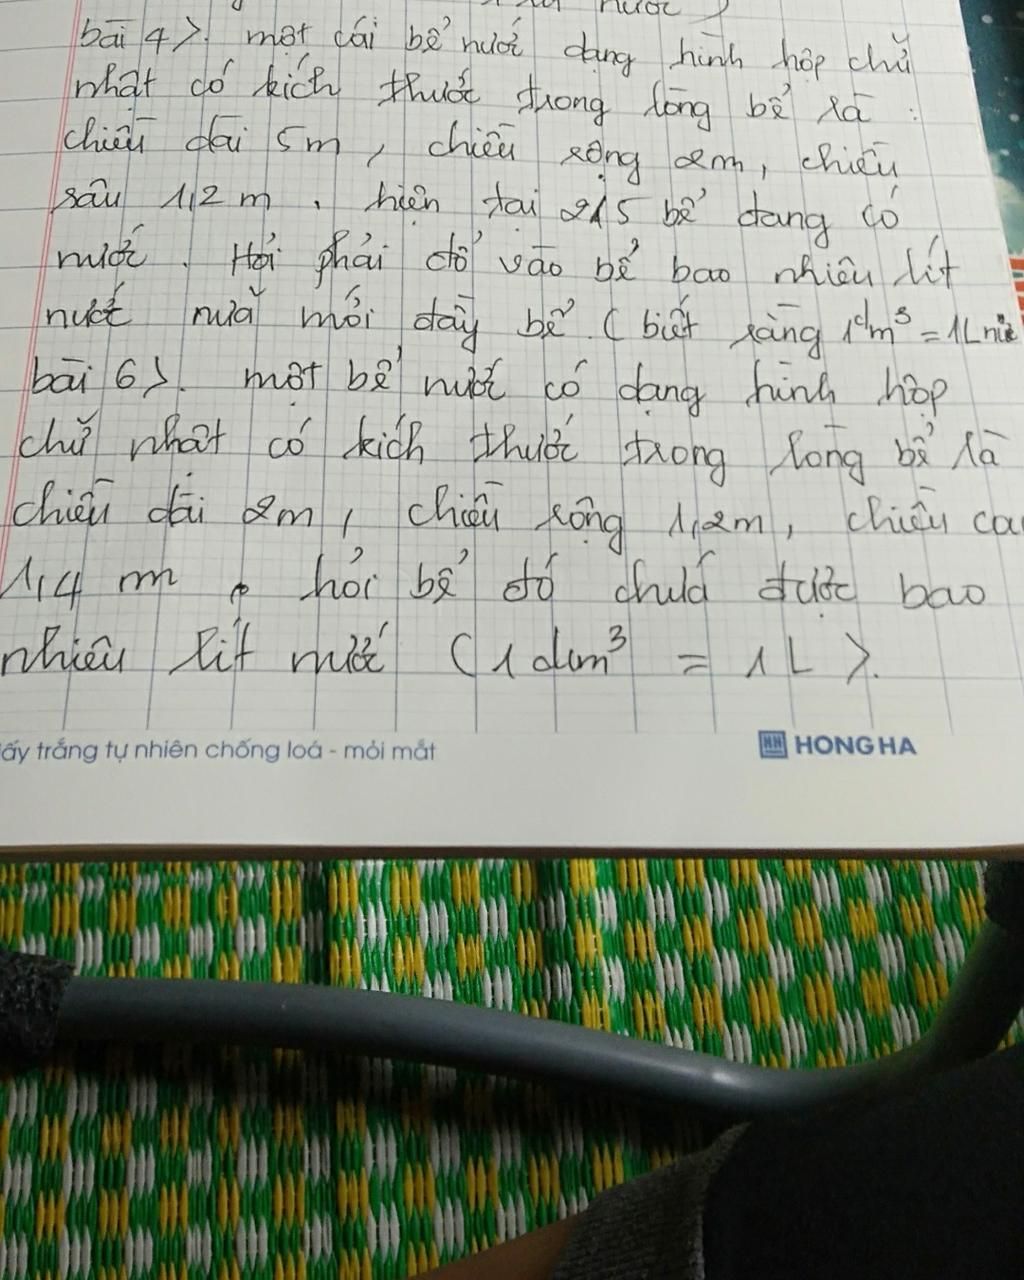 nước)
bài 4>. một cái bể nước dạng hình hộp chữ
nhật có kích thước trong lòng bể là :
chiều dài 5m, chiều rộng 2m, chiều
sâu 1,2 m. hiện tại 2/5 bể đang có
nước. Hỏi phải đổ vào bể bao nhiêu lít
nước nữa mới đầy bể. (biết rằng 1dm³ = 1L nước
bài 6>. một bể nước có dạng hình hộp
chữ nhật có kích thước trong lòng bể là
chiều dài 2m, chiều rộng 1,2m, chiều cao
1,4 m. hỏi bể đó chứa được bao
nhiêu lít nước (1 dm³ = 1L).
ấy trắng tự nhiên chống loá - mỏi mắt
HH HONG HA